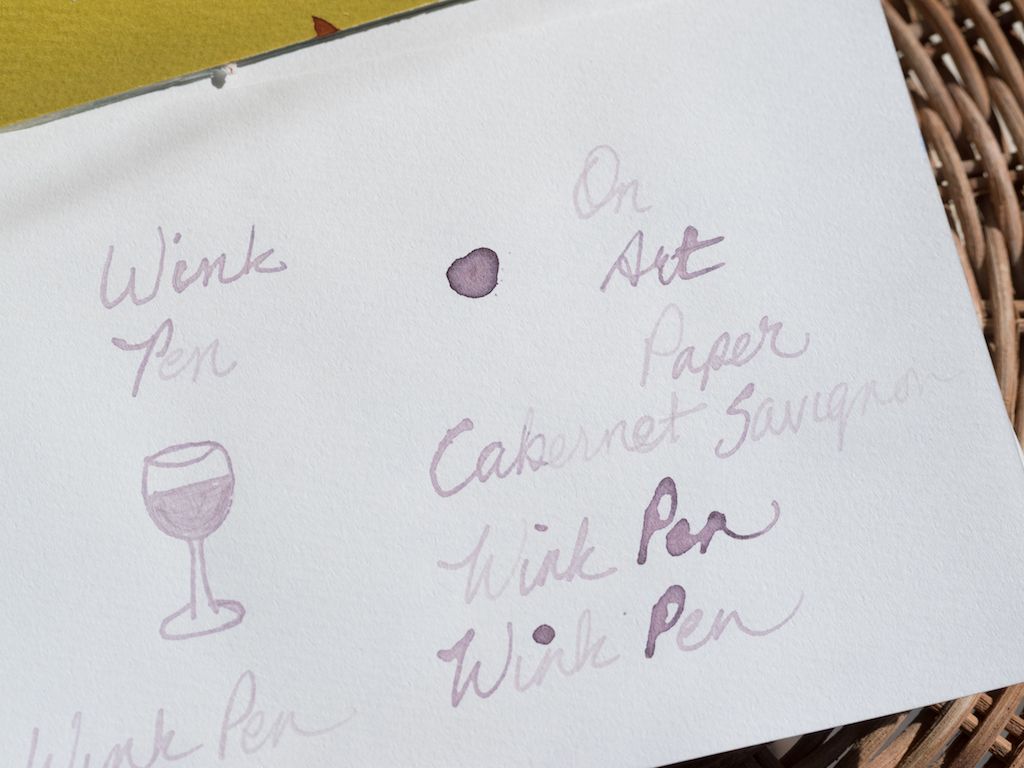 Wink
Pen
On
Art
Paper
Cabernet Sauvignon
Wink Pen
Wink Pen
Wink Pen